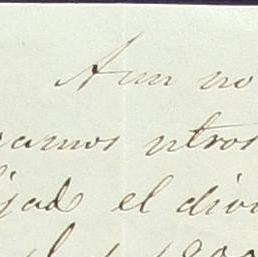 Aun no
ramos ntros
ijad el divi